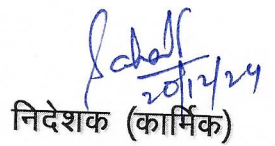 20/12/24
निदेशक (कार्मिक)